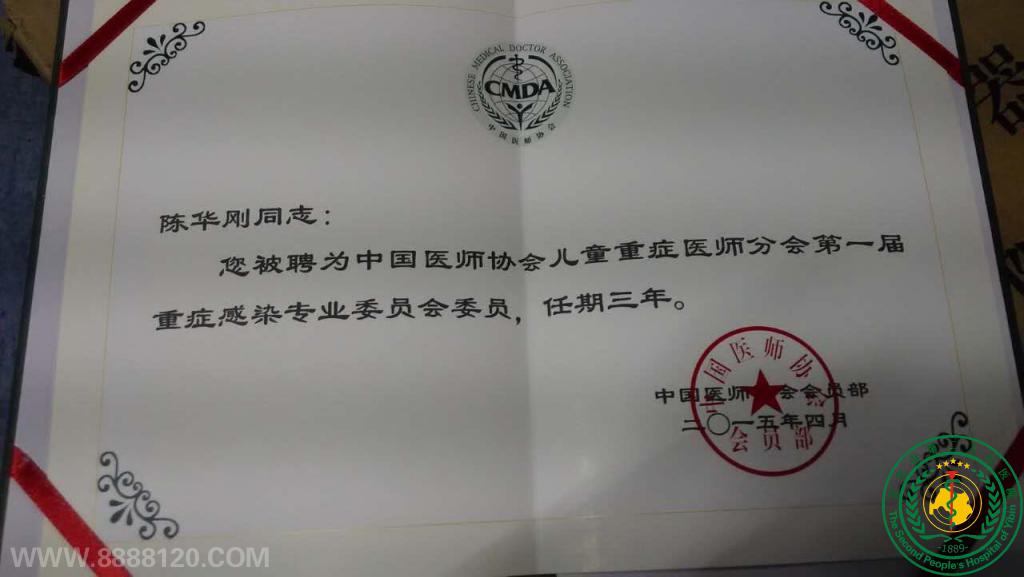 CHINESE MEDICAL DOCTOR ASSOCIATION
CMDA
中国医师协会
陈华刚同志：
您被聘为中国医师协会儿童重症医师分会第一届
重症感染专业委员会委员，任期三年。
中国医师协会会员部
二〇一五年四月
中国医师协会
会员部
器
WWW.8888120.COM
The Second People's Hospital of Yibin
-1889-